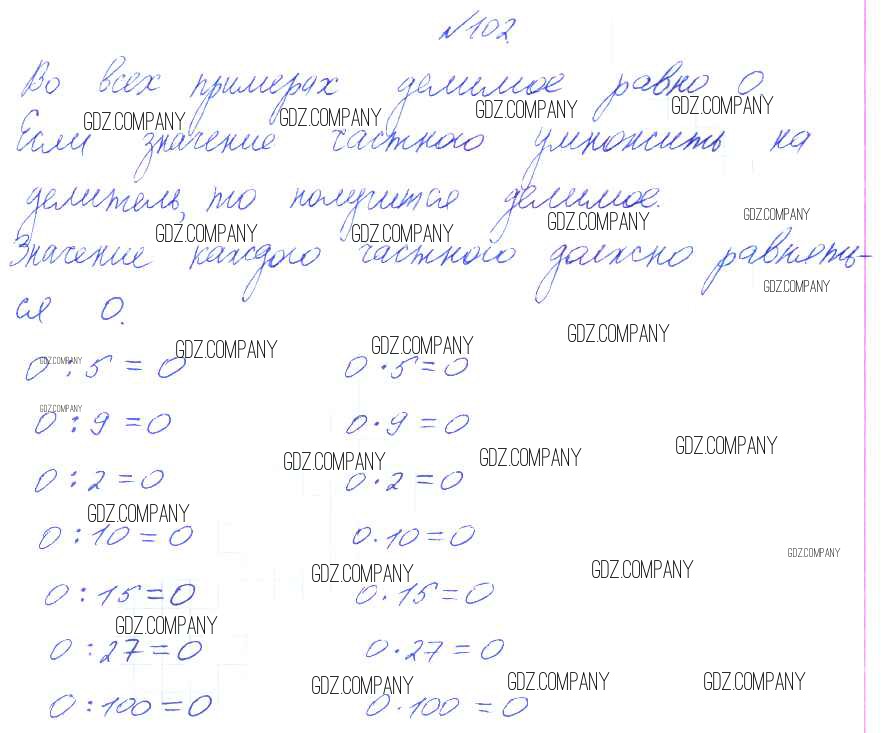 №102.
Во всех примерах делимое равно 0.
GDZ.COMPANY GDZ.COMPANY GDZ.COMPANY GDZ.COMPANY
Если значение частного умножить на
делитель, то получится делимое.
GDZ.COMPANY GDZ.COMPANY GDZ.COMPANY GDZ.COMPANY
Значение каждого частного должно равнять-
GDZ.COMPANY
ся 0.
GDZ.COMPANY GDZ.COMPANY GDZ.COMPANY
GDZ.COMPANY
0 : 5 = 0 0 · 5 = 0
GDZ.COMPANY
0 : 9 = 0 0 · 9 = 0
GDZ.COMPANY GDZ.COMPANY GDZ.COMPANY
0 : 2 = 0 0 · 2 = 0
GDZ.COMPANY
0 : 10 = 0 0 · 10 = 0
GDZ.COMPANY
GDZ.COMPANY GDZ.COMPANY
0 : 15 = 0 0 · 15 = 0
GDZ.COMPANY
0 : 27 = 0 0 · 27 = 0
GDZ.COMPANY GDZ.COMPANY GDZ.COMPANY
0 : 100 = 0 0 · 100 = 0